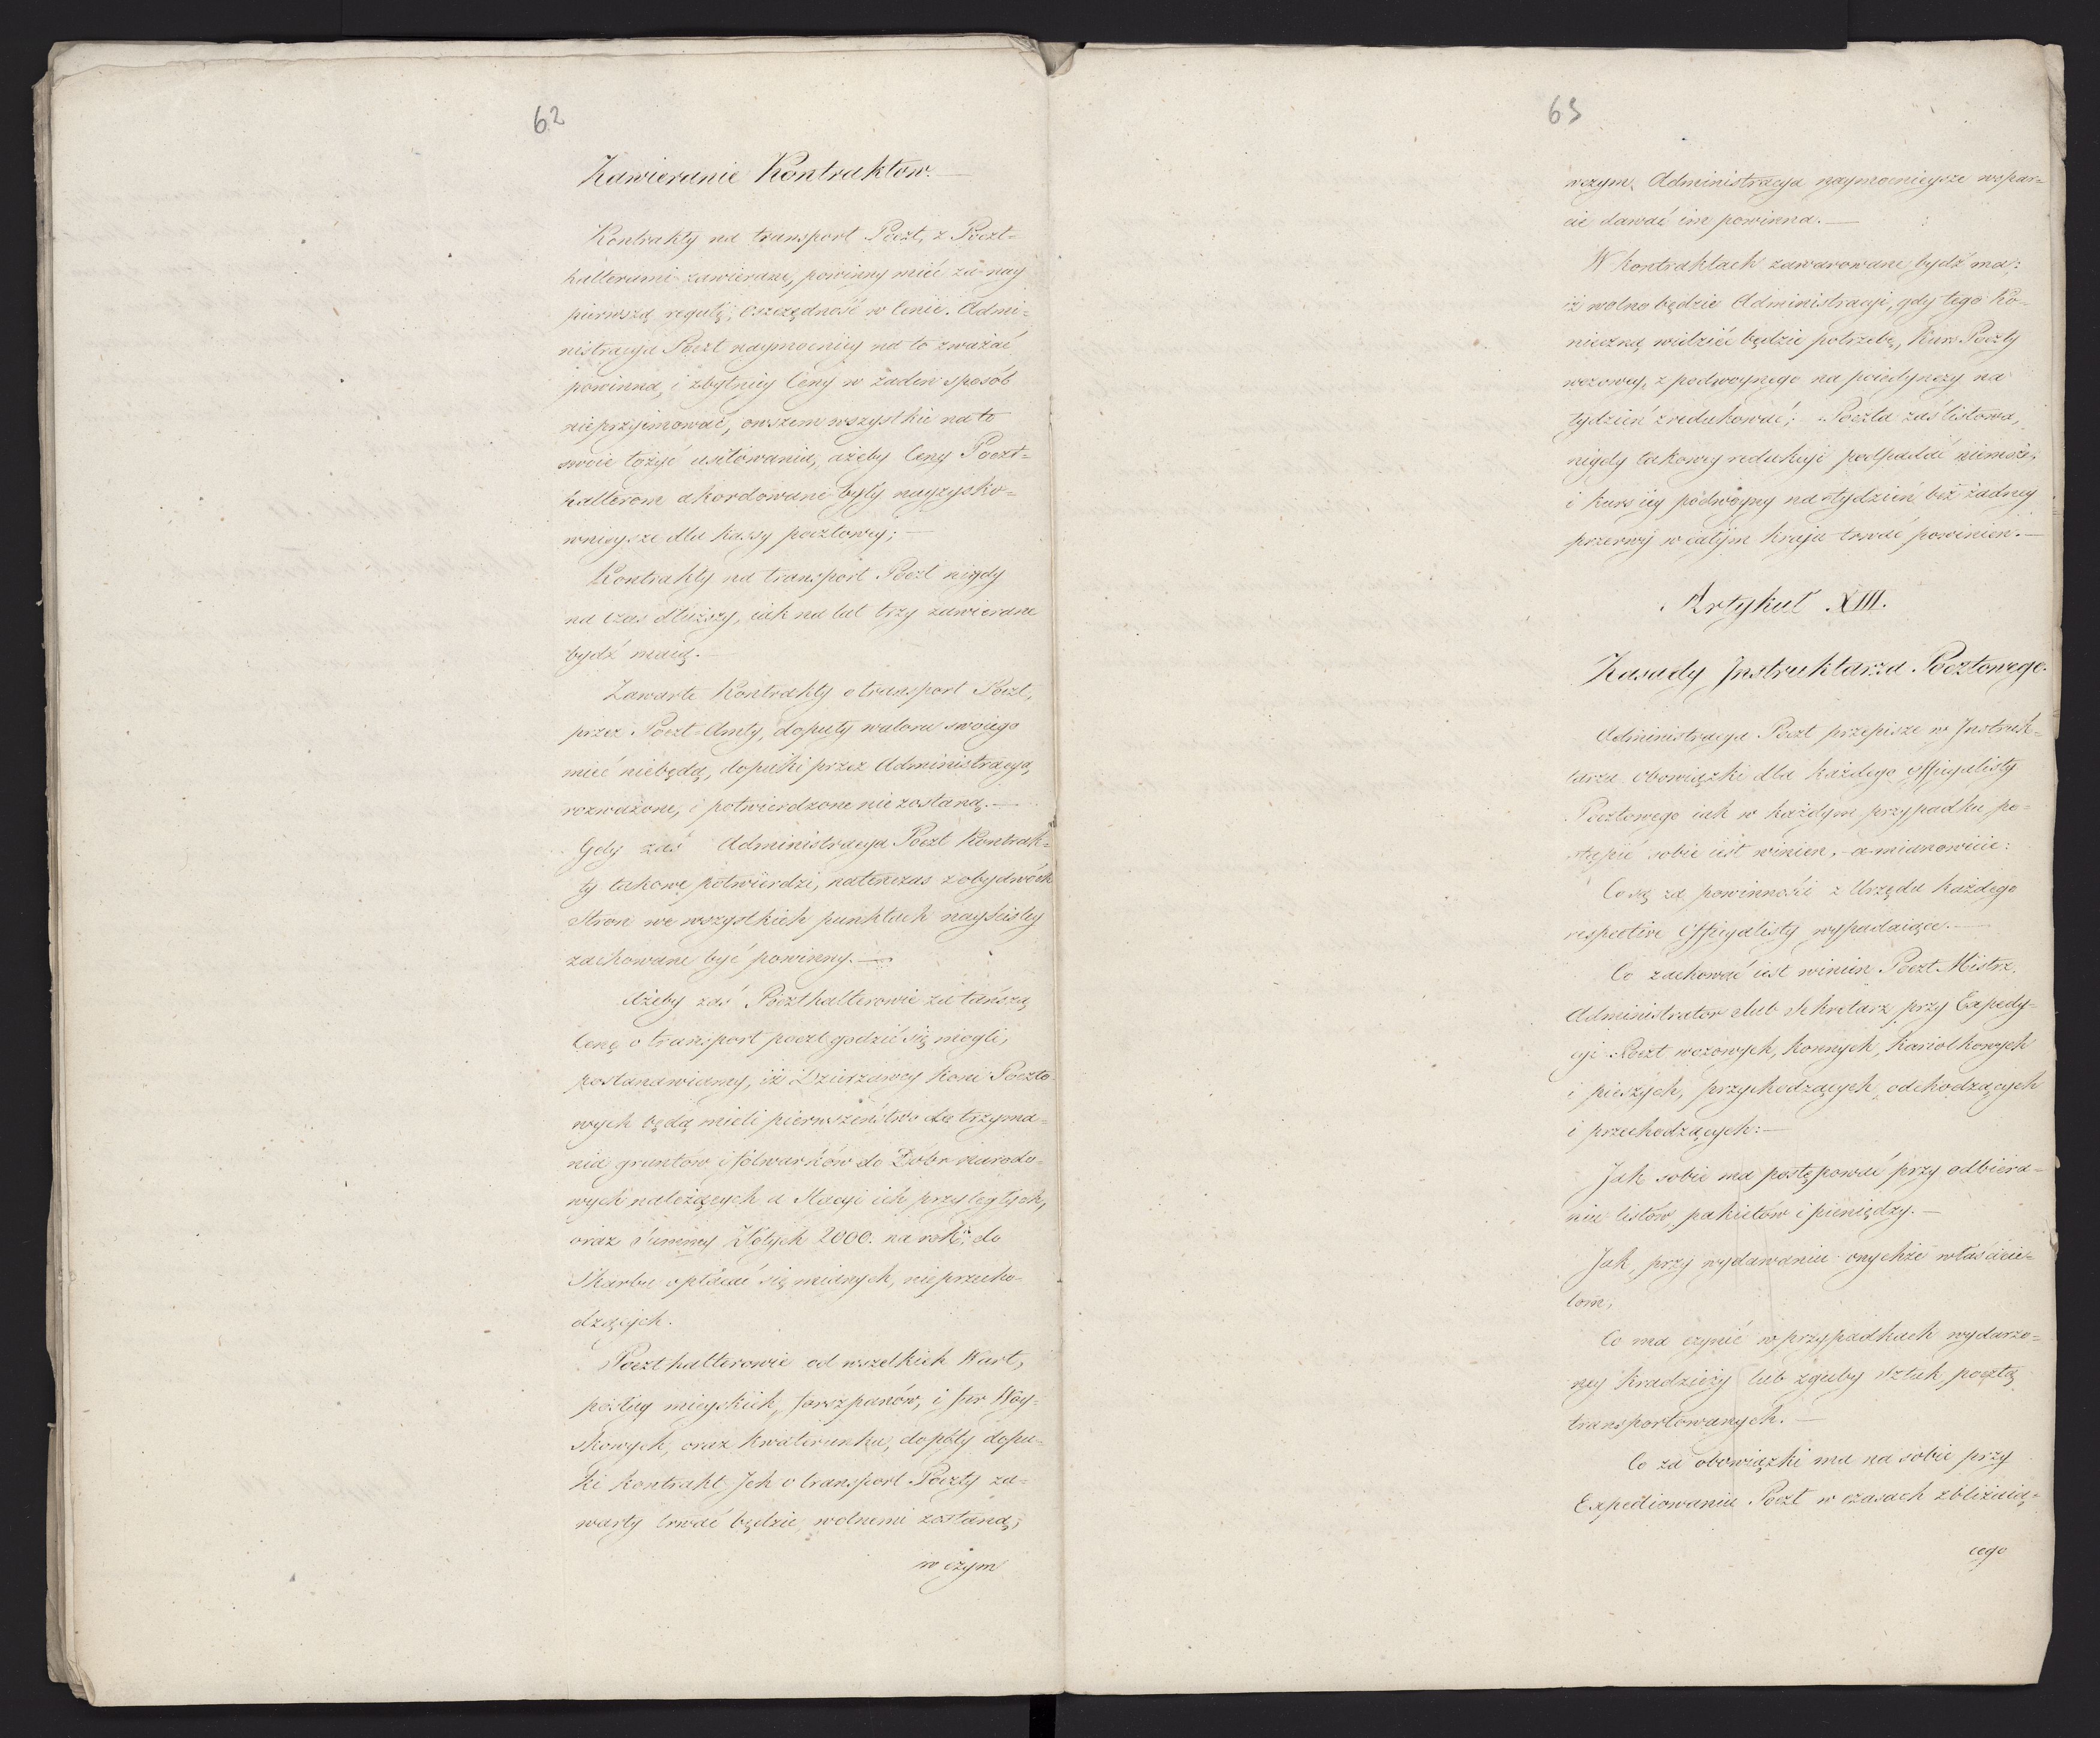 62
Zawieranie Kontraktow.—
Kontrakty na transport Poczt, z Poczt=
halterami zawierane, powinny mieć za nay
pierwszą regułę, oszczędność w Cenie. Admi=
nistracya Poczt naymocniey na to zważać
powinna, i zbytniey Ceny w żaden sposób
nieprzyimować, owszem wszystkie na to
swoie łożyć usiłowania, ażeby Ceny Poczt=
halterom akordowane były nayzysko=
wnieysze dla Kassy pocztowey;—
Kontrakty na transport Poczt nigdy
na czas dłuższy, iak na lat trzy zawierane
bydź maią.—
Zawarte Kontrakty o transport Poczt,
przez Poczt-Amty, doputy waloru swoiego
mieć niebędą, dopuki przez Administracyą
rozważone, i potwierdzone nie zostaną.—
Gdy zaś Administracya Poczt Kontrak=
ty takowe potwierdzi, natenczas z obydwóch
Stron we wszystkich punktach nayściśley
zachowane być powinny.—
Ażeby zaś Poczthalterowie za tańszą
Cenę o transport poczt godzić się mogli,
postanawiamy, iż Dzierżawcy Koni Poczto
wych będą mieli pierwszeństwo do trzyma=
nia gruntów i folwarków do Dobr narodo=
wych należących a Stacyi ich przyległych,
oraz Summy Złotych 2000. na rok do
Skarbu opłacać się mianych, nieprzecho
dzących.
Poczthalterowie od wszelkich Wart,
posług mieyskich, forszpanów, i fur Woy=
skowych, oraz kwaterunku, dopóty dopu=
ki kontrakt Jch o transport Poczty za=
warty trwać będzie, wolnemi zostaną;
w czym
63
wczym Administracya naymocnieysze wspar=
cie dawać im powinna.—
W kontraktach zawarowane bydź ma:
iż wolno będzie Administracyi, gdy tego Ko=
nieczną widzieć będzie potrzebę, Kurs Poczty
wozowey, z podwoynego na poiedynczy na
tydzień zredukować; Poczta zaś listowa,
nigdy takowey redukcyi podpadać niema,
i kurs iey podwoyny na tydzień bez żadney
przerwy w całym Kraju trwać powinien.—
Artykuł XIII.
Zasady Jnstruktarza Pocztowego.
Administracya Poczt przepisze w Jnstruk=
tarzu obowiązki dla każdego Officyalisty
Pocztowego iak w każdym przypadku po=
stąpić sobie iest winien, a mianowicie:
Co są za powinności z Urzędu każdego
respective Officyalisty wypadaiące.—
Co zachować iest winien Poczt Mistrz,
Administrator lub Sekretarz przy Expedy=
cyi Poczt wozowych, konnych, kariolkowych
i pieszych, przychodzących, odchodzących
i przechodzących:—
Jak sobie ma postępować przy odbiera=
niu listów, pakietów i pieniędzy.—
Jak, przy wydawaniu onychże właścicie=
lom,
Co ma czynić w przypadkach wydarzo=
ney kradzieży lub zguby sztuk pocztą
transportowanych.—
Co za obowiązki ma na sobie przy
Expediowaniu Poczt w czasach zbliżaią=
cego